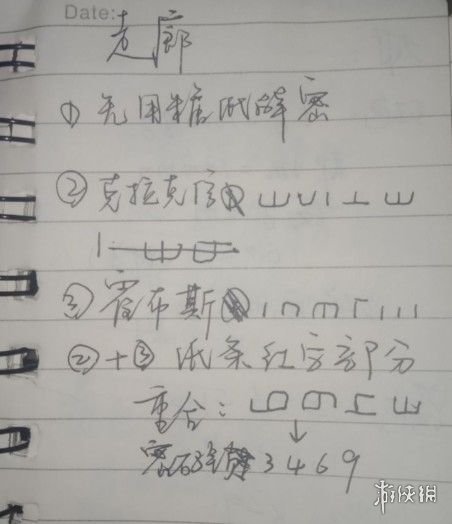 Date:
走廊
① 先用糖纸解密
② 克拉克信
③ 霍布斯
②+③ 纸条红字部分
重合:
↓
密码 3469
游侠网